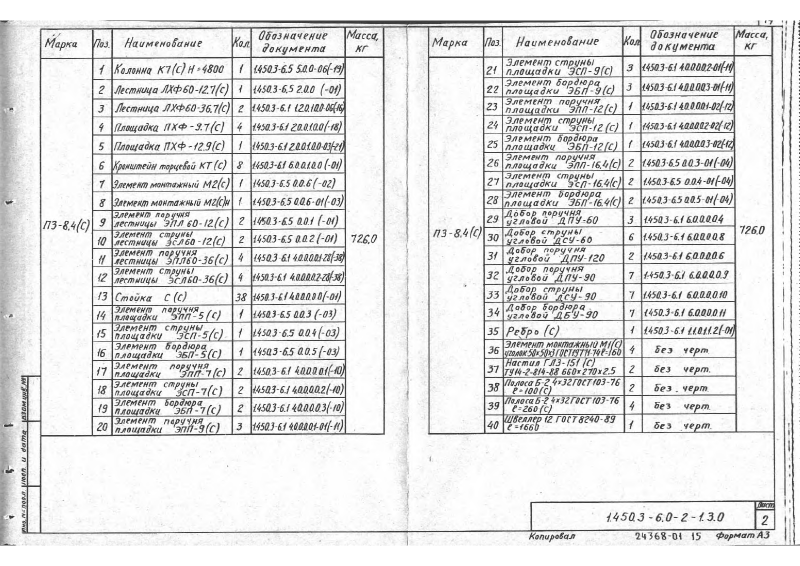 Марка Поз. Наименование Кол. Обозначение документа Масса, кг
ПЗ-8.4(С) 726,0
1 Колонна К7(С) Н=4800 1 1.450.3-6.5 5.0.0-06(-19)
2 Лестница ЛХФ60-12.7(С) 1 1.450.3-6.5 2.0.0 (-01)
3 Лестница ЛХФ60-36.7(С) 2 1.450.3-6.1 1.2.0.1.0.0-06(16)
4 Площадка ПХФ-9.7(С) 4 1.450.3-6.1 2.0.0.1.0.0(-18)
5 Площадка ПХФ-12.9(С) 1 1.450.3-6.1 2.0.0.1.0.0-03(-21)
6 Кронштейн торцевой КТ(С) 8 1.450.3-6.1 6.0.0.1.0.0 (-01)
7 Элемент монтажный М2(С) 1 1.450.3-6.5 0.0.6 (-02)
8 Элемент монтажный М2(С)Н 1 1.450.3-6.5 0.0.6-01(-03)
9 Элемент поручня лестницы ЭПЛ60-12(С) 2 1.450.3-6.5 0.0.1 (-01)
10 Элемент струны лестницы ЭСЛ60-12(С) 2 1.450.3-6.5 0.0.2 (-01)
11 Элемент поручня лестницы ЭПЛ60-36(С) 4 1.450.3-6.1 4.0.0.0.0.1-28(-38)
12 Элемент струны лестницы ЭСЛ60-36(С) 4 1.450.3-6.1 4.0.0.0.0.2-28(-38)
13 Стойка С (С) 38 1.450.3-6.1 4.0.0.0.0.0 (-01)
14 Элемент поручня площадки ЭПП-5(С) 1 1.450.3-6.5 0.0.3 (-03)
15 Элемент струны площадки ЭСП-5(С) 1 1.450.3-6.5 0.0.4 (-03)
16 Элемент бордюра площадки ЭБП-5(С) 1 1.450.3-6.5 0.0.5 (-03)
17 Элемент поручня площадки ЭПП-7(С) 2 1.450.3-6.1 4.0.0.0.0.1(-10)
18 Элемент струны площадки ЭСП-7(С) 2 1.450.3-6.1 4.0.0.0.0.2(-10)
19 Элемент бордюра площадки ЭБП-7(С) 2 1.450.3-6.1 4.0.0.0.0.3(-10)
20 Элемент поручня площадки ЭПП-9(С) 3 1.450.3-6.1 4.0.0.0.0.1-01(-11)
Марка Поз. Наименование Кол. Обозначение документа Масса, кг
ПЗ-8.4(С) 726,0
21 Элемент струны площадки ЭСП-9(С) 3 1.450.3-6.1 4.0.0.0.0.2-01(-11)
22 Элемент бордюра площадки ЭБП-9(С) 3 1.450.3-6.1 4.0.0.0.0.3-01(-11)
23 Элемент поручня площадки ЭПП-12(С) 1 1.450.3-6.1 4.0.0.0.0.1-02(-12)
24 Элемент струны площадки ЭСП-12(С) 1 1.450.3-6.1 4.0.0.0.0.2-02(-12)
25 Элемент бордюра площадки ЭБП-12(С) 1 1.450.3-6.1 4.0.0.0.0.3-02(-12)
26 Элемент поручня площадки ЭПП-16.4(С) 2 1.450.3-6.5 0.0.3-01(-04)
27 Элемент струны площадки ЭСП-16.4(С) 2 1.450.3-6.5 0.0.4-01(-04)
28 Элемент бордюра площадки ЭБП-16.4(С) 2 1.450.3-6.5 0.0.5-01(-04)
29 Добор поручня угловой ДПУ-60 3 1.450.3-6.1 6.0.0.0.0.4
30 Добор струны угловой ДСУ-60 6 1.450.3-6.1 6.0.0.0.0.8
31 Добор поручня угловой ДПУ-120 2 1.450.3-6.1 6.0.0.0.0.6
32 Добор поручня угловой ДПУ-90 7 1.450.3-6.1 6.0.0.0.0.9
33 Добор струны угловой ДСУ-90 7 1.450.3-6.1 6.0.0.0.0.10
34 Добор бордюра угловой ДБУ-90 7 1.450.3-6.1 6.0.0.0.0.11
35 Ребро (С) 1 1.450.3-6.1 1.1.0.1.1.2(-01)
36 Элемент монтажный М1(С) уголок 50х50х5 ГОСТ 19771-74 ℓ=160 4 Без черт.
37 Настил ГЛЗ-151 (С) ТУ14-2-814-88 660×270×2.5 2 Без черт.
38 Полоса Б-2 4×32 ГОСТ 103-76 ℓ=100(С) 2 Без черт.
39 Полоса Б-2 4×32 ГОСТ 103-76 ℓ=260(С) 4 Без черт.
40 Швеллер 12 ГОСТ 8240-89 ℓ=1660 1 Без черт.
Инв.№ подл. Подп. и дата Взам.инв.№
1.450.3-6.0-2-1.3.0
Лист
2
Копировал 24368-01 15 Формат А3